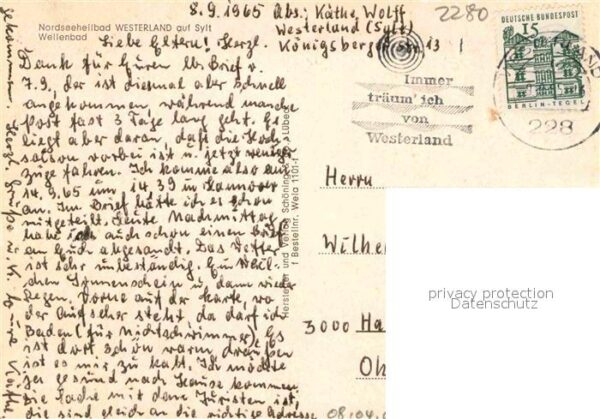 8.9.1965 Abs.: Käthe Wolff
Westerland (Sylt)
Königsberger Str. 13
2280
Nordseeheilbad WESTERLAND auf Sylt
Wellenbad
Liebe Eltern! Herzl.
Dank für Euren lb. Brief v.
7.9., der ist diesmal aber schnell
angekommen, während manche
Post fast 3 Tage lang geht. Es
liegt aber daran, daß die Hoch-
saison vorbei ist u. jetzt weniger
Züge fahren. Ich komme also am
14.9.65 um 14.39 in Hannover
an. Im Brief hatte ich es schon
mitgeteilt. Heute Nachmittag
habe ich auch schon einen Brief
an Euch abgesandt. Das Wetter
ist sehr unbeständig. Ein
Sonnenschein u. dann wieder
Regen. Vorne auf der Karte, wo
der Aufseher steht da darf ich
baden (für Nichtschwimmer). Es
ist dort schön warm, draußen
ist es mir zu kalt. Ich möchte
ja gesund nach Hause kommen.
Die Sache mit dem Juristen ist,
die sind gleich an die richtige Adresse
gekommen. Herzl. Grüße u. K. Eure Käthe
Hersteller und Verlag Schöning & Co., Lübeck
Bestellnr. Wela 1101
DEUTSCHE BUNDESPOST
15
BERLIN-TEGEL
228
Immer
träum' ich
von
Westerland
Herrn
Wilhe
3000 Ha
Oh
privacy protection
Datenschutz
08.04.